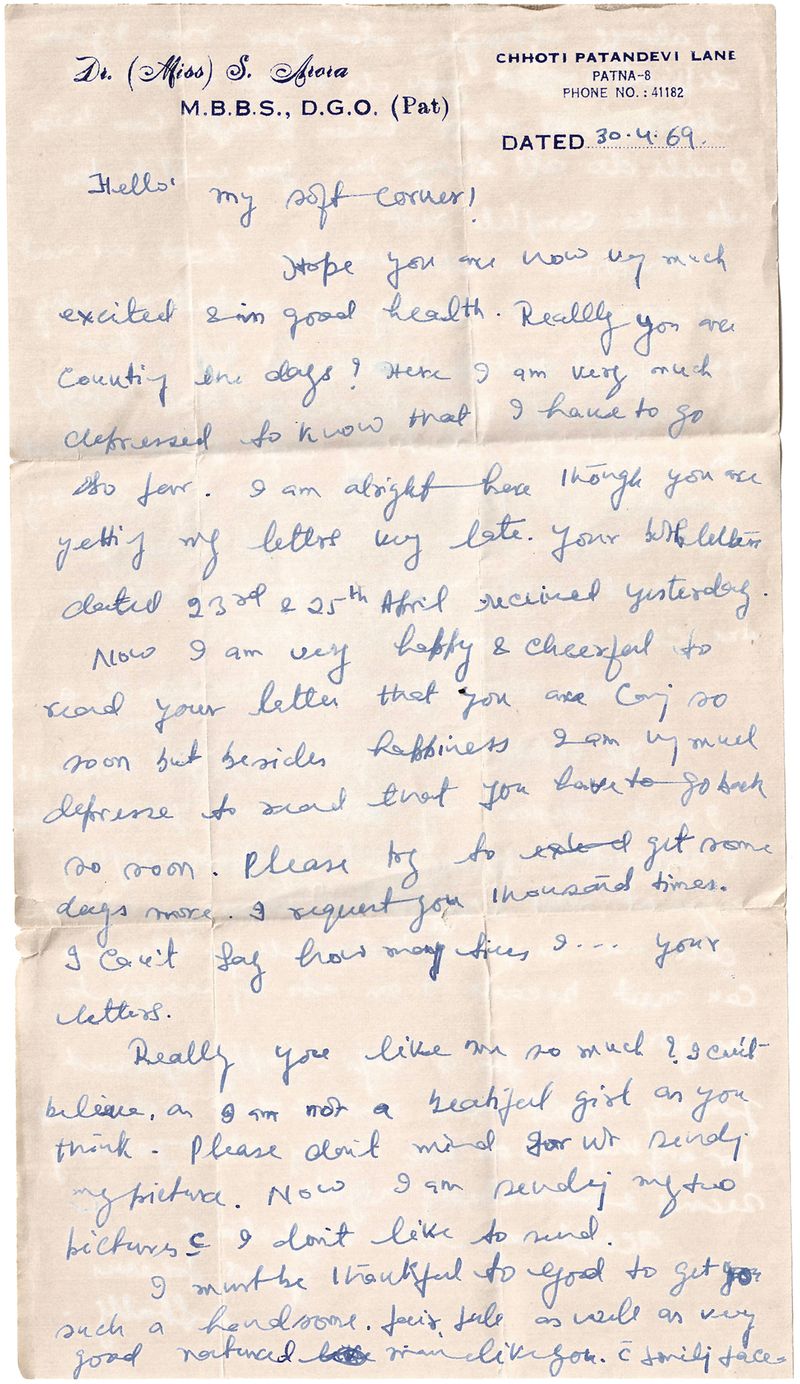 Dr. (Miss) S. Arora
M.B.B.S., D.G.O. (Pat)
CHHOTI PATANDEVI LANE
PATNA-8
PHONE NO. : 41182
DATED 30.4.69.
Hello' my soft corner!
Hope you are now very much
excited & in good health. Reallly you are
counting the days? Here I am very much
depressed to know that I have to go
so far. I am alright here though you are
getting my letters very late. Your both letters
dated 23rd & 25th April received yesterday.
Now I am very happy & cheerful to
read your letter that you are coming so
soon but besides happiness I am very much
depresse to read that you have to go back
so soon. Please try to get some
days more. I request you thousand times.
I can't say how many times I... your
letters.
Really you like me so much? I can't
believe, as I am not a beatiful girl as you
think. Please don't mind for not sending
my picture. Now I am sending my two
pictures c̄ I don't like to send.
I must be thankful to God to get
such a handsome. fair as well as very
good natured man like you. c̄ smiling face-